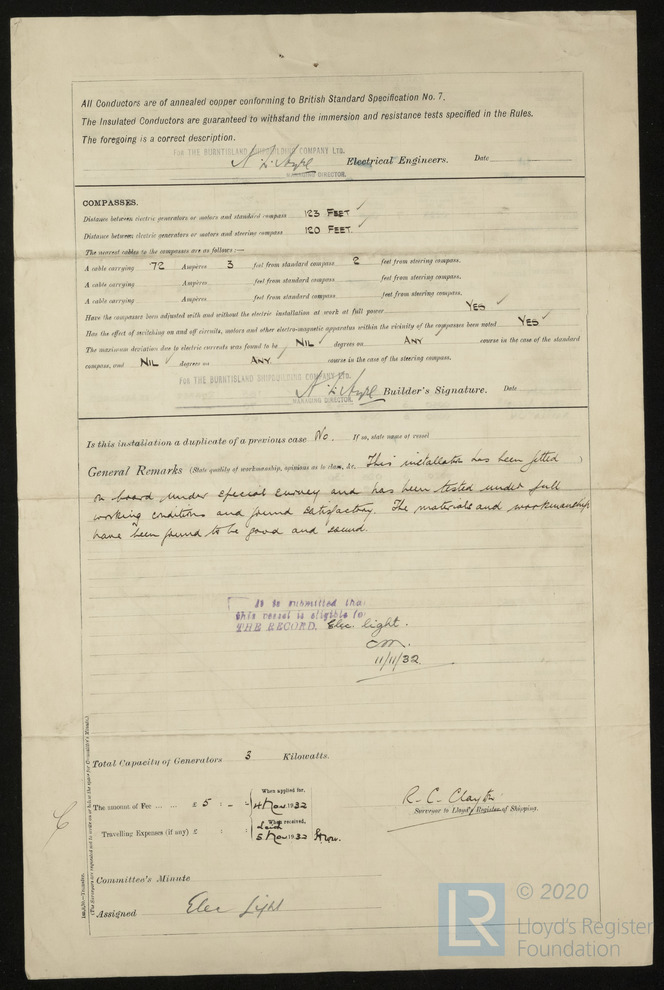 All Conductors are of annealed copper conforming to British Standard Specification No. 7.
The Insulated Conductors are guaranteed to withstand the immersion and resistance tests specified in the Rules.
The foregoing is a correct description.
FOR THE BURNTISLAND SHIPBUILDING COMPANY LTD.
Electrical Engineers. Date
MANAGING DIRECTOR.
COMPASSES.
Distance between electric generators or motors and standard compass 123 FEET ✓
Distance between electric generators or motors and steering compass 120 FEET. ✓
The nearest cables to the compasses are as follows:—
A cable carrying 72 Ampères 3 feet from standard compass 2 feet from steering compass.
A cable carrying Ampères feet from standard compass feet from steering compass.
A cable carrying Ampères feet from standard compass feet from steering compass.
Have the compasses been adjusted with and without the electric installation at work at full power YES ✓
Has the effect of switching on and off circuits, motors and other electro-magnetic apparatus within the vicinity of the compasses been noted YES ✓
The maximum deviation due to electric currents was found to be NIL ✓ degrees on ANY course in the case of the standard
compass, and NIL ✓ degrees on ANY course in the case of the steering compass.
FOR THE BURNTISLAND SHIPBUILDING COMPANY LTD.
Builder's Signature. Date
MANAGING DIRECTOR.
Is this installation a duplicate of a previous case No. If so, state name of vessel
General Remarks (State quality of workmanship, opinions as to class, &c. This installation has been fitted
on board under special survey and has been tested under full
working conditions and found satisfactory. The materials and workmanship
have been found to be good and sound.
It is submitted that
this vessel is eligible for
THE RECORD. Elec. light.
11/11/32
Total Capacity of Generators 3 Kilowatts.
When applied for,
The amount of Fee ... ... £ 5 : - : 4 Nov 1932
R. C. Clayton
Surveyor to Lloyd's Register of Shipping.
When received,
Travelling Expenses (if any) £ : : 5 Nov 1932
Committee's Minute
Assigned Elec Light
© 2020
LR
Lloyd's Register
Foundation